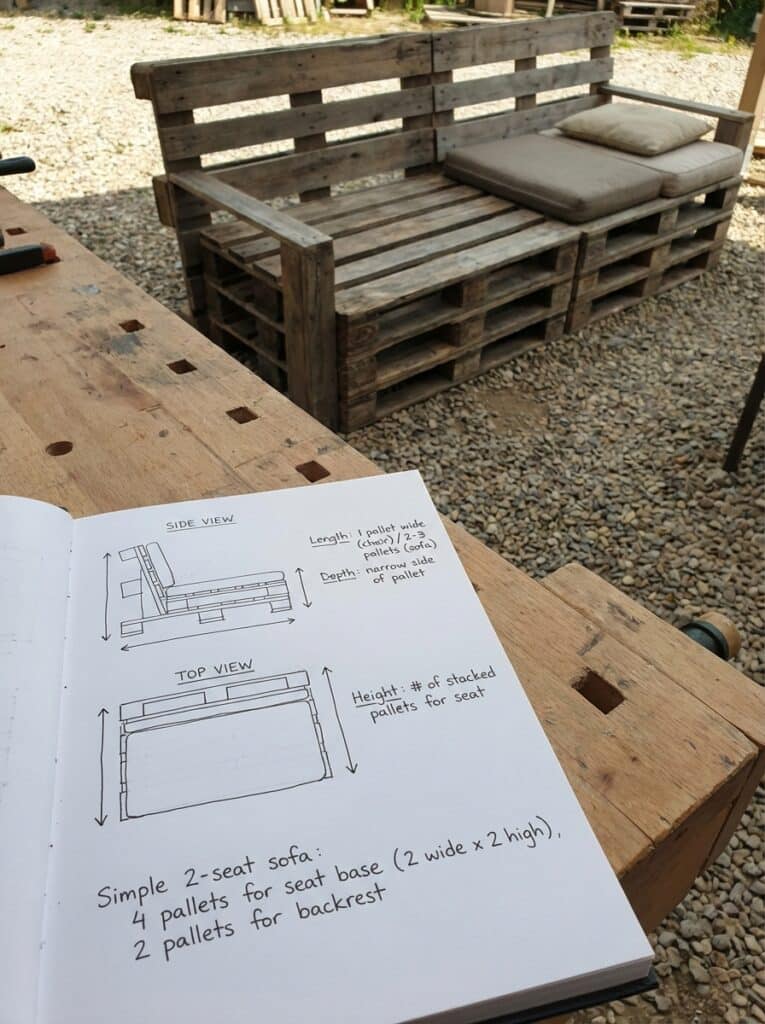 SIDE VIEW
Length: 1 pallet wide
(chair) / 2-3
pallets (sofa)
Depth: narrow side
of pallet
TOP VIEW
Height: # of stacked
pallets for seat
Simple 2-seat sofa:
4 pallets for seat base (2 wide x 2 high),
2 pallets for backrest